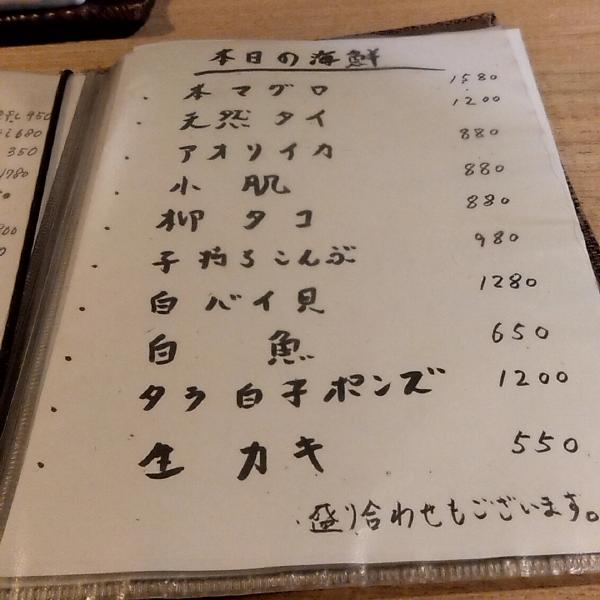 本日の海鮮
・本マグロ 1580
・天然タイ 1200
・アオリイカ 880
・小肌 880
・柳タコ 880
・子持ちこんぶ 980
・白バイ貝 1280
・白魚 650
・タラ白子ポンズ 1200
・生カキ 550
盛り合わせもございます。
950
680
350